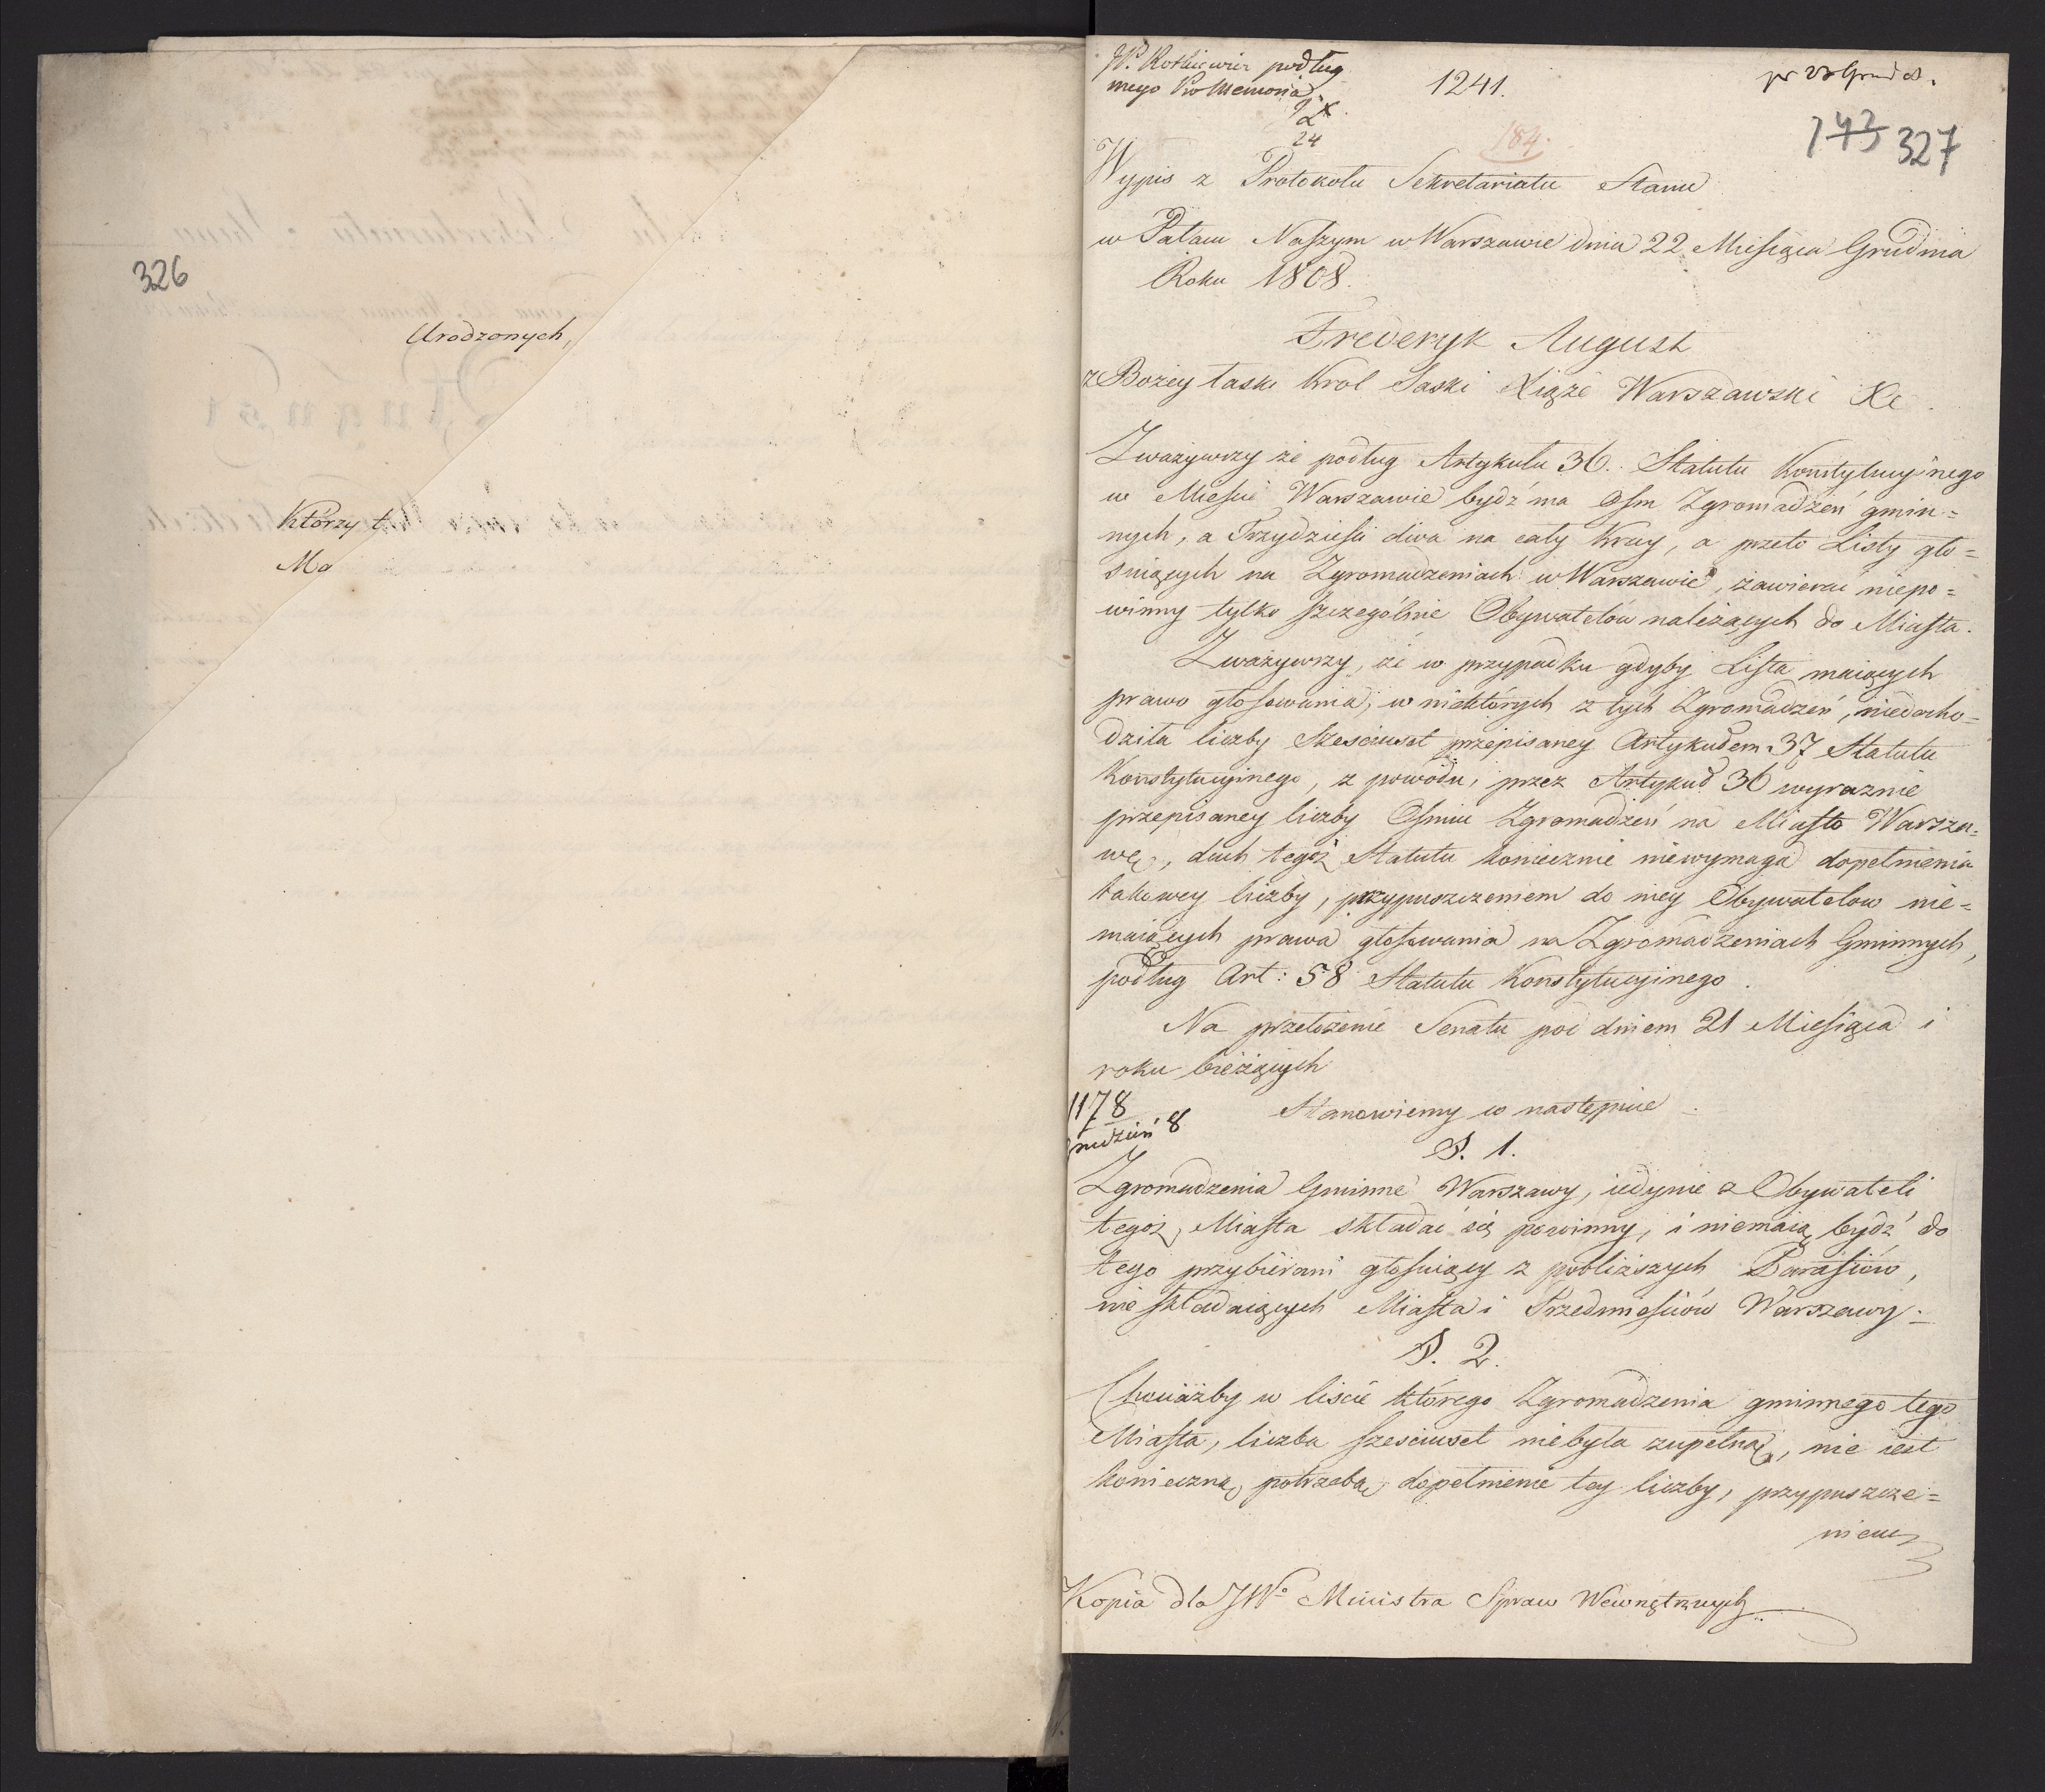 326
Urodzonych,
Którzy t
Ma
W. Rotkiewicz podług
mego Pro Memoria
24
1241.
184.
143 327
Wypis z Protokołu Sekretariatu Stanu
w Pałacu Naszym w Warszawie dnia 22 Miesiąca Grudnia
Roku 1808.
Frederyk August
z Bożey łaski Krol Saski Xiąże Warszawski &c
Zważywszy że podług Artykułu 36. Statutu Konstytucyinego
w Mieście Warszawie bydź ma Osm Zgromadzeń gmin=
nych, a Trzydzieści dwa na cały Kray, a przeto Listy gło=
suiących na Zgromadzeniach w Warszawie, zawierać niepo=
winny tylko szczególnie Obywatelów należących do Miasta.
Zważywszy, że w przypadku gdyby Lista maiących
prawo głosowania, w niektórych z tych Zgromadzeń, niedocho=
dziła liczby Sześciuset przepisaney Artykułem 37 Statutu
Konstytucyinego, z powodu, przez Artykuł 36 wyraznie
przepisaney liczby Osmiu Zgromadzeń na Miasto Warsza=
wę, duch tegoż Statutu koniecznie niewymaga dopełnienia
takowey liczby, przypuszczeniem do niey Obywatelow nie=
maiących prawa głosowania na Zgromadzeniach Gminnych,
podług Art: 58 Statutu Konstytucyinego.
Na przełożenie Senatu pod dniem 21 Miesiąca i
roku bieżących
1178
Grudzień 8
Stanowiemy co następuie
§. 1.
Zgromadzenia Gminne Warszawy, iedynie z Obywateli
tegoż Miasta składać się powinny, i niemaią bydź do
tego przybierani głosuiący z pobliższych Parafiów,
nie składaiących Miasta i Przedmieściów Warszawy.
§. 2.
Chociażby w liście którego Zgromadzenia gminnego tego
Miasta, liczba sześciuset niebyła zupełną, nie iest
konieczną potrzebą dopełnienie tey liczby, przypuszcze=
niem
Kopia dla JWo Ministra Spraw Wewnętrznych